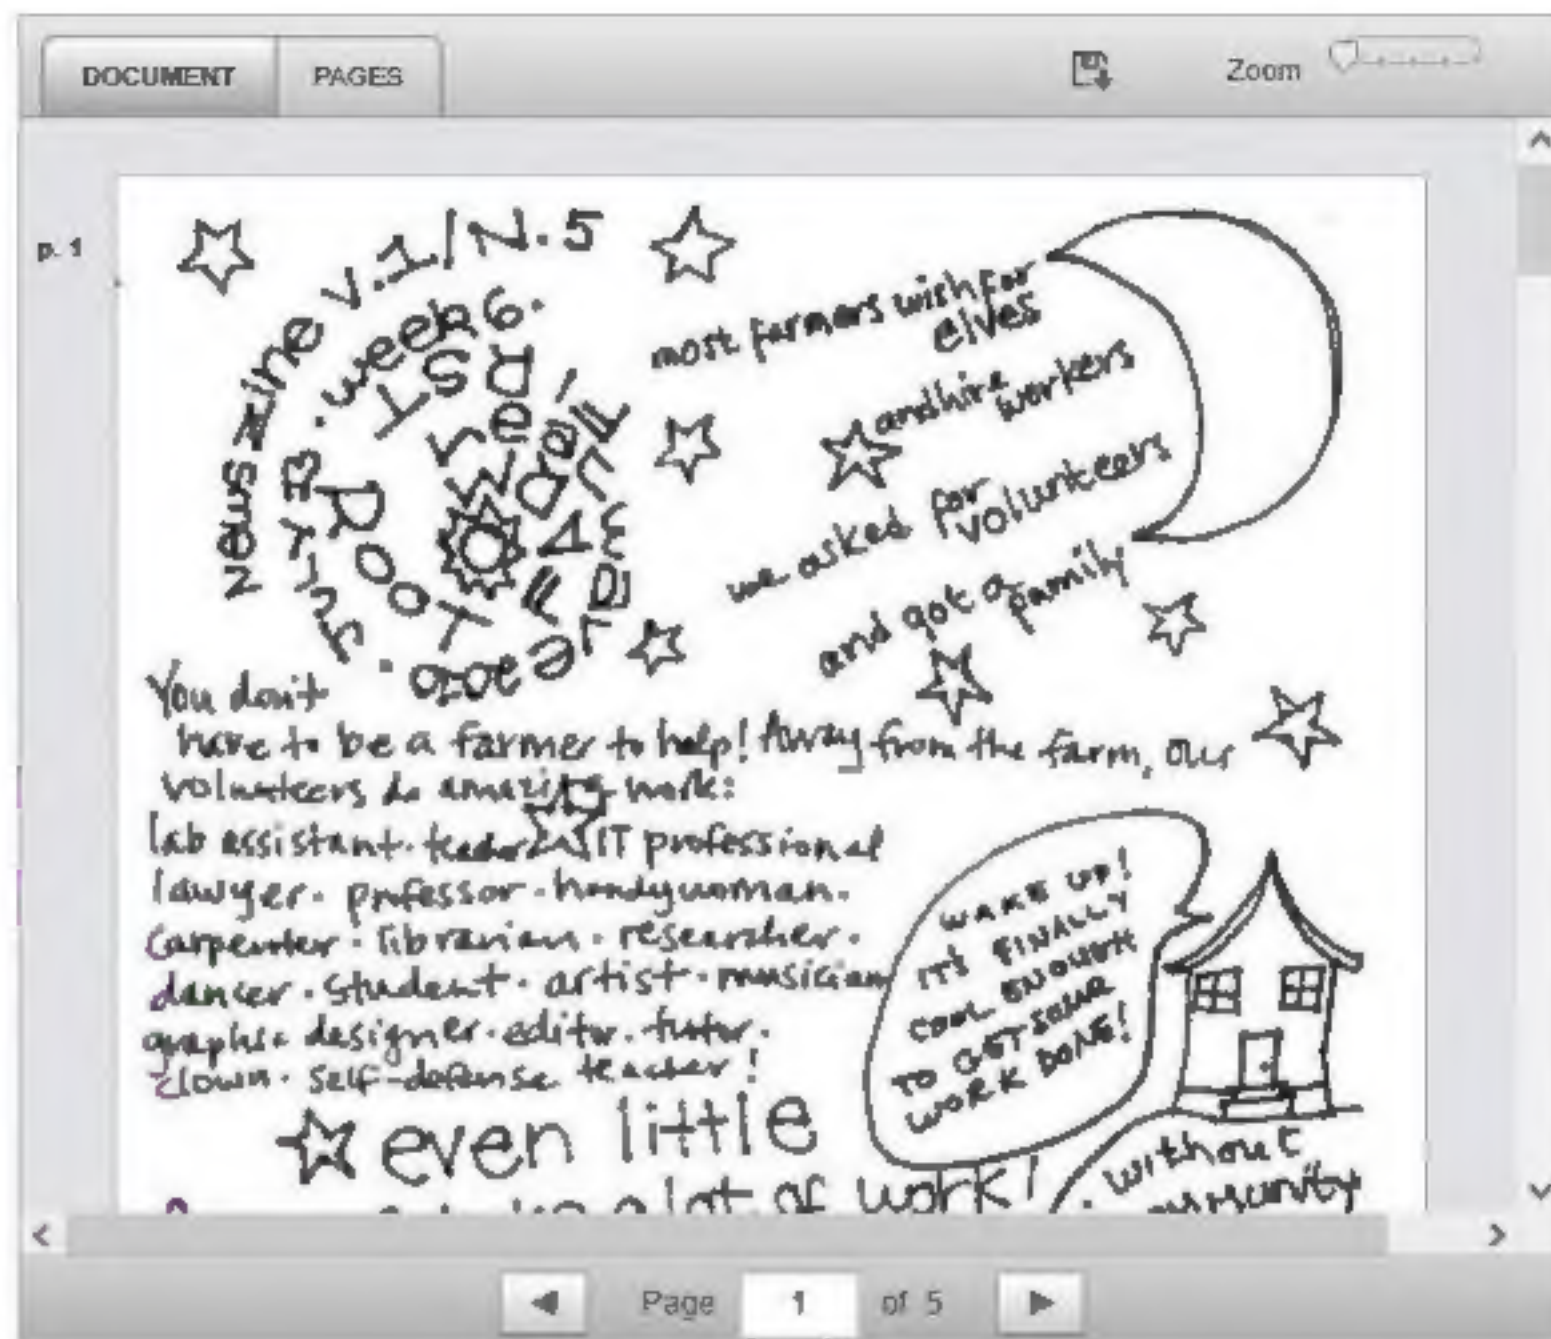 DOCUMENT PAGES Zoom
p. 1
News zine V.1/N.5
July 13. week 6.
ROOT
most farmers wish for
elves
and hire
workers
we asked for
volunteers
and got a
family
You don't
have to be a farmer to help! Away from the farm, our
volunteers do amazing work:
lab assistant. teacher IT professional
lawyer. professor. handywoman.
carpenter. librarian. researcher.
dancer. student. artist. musician
graphic designer. editor. tutor.
clown. self-defense teacher!
WAKE UP!
IT'S FINALLY
COOL ENOUGH
TO GET SOME
WORK DONE!
even little
a lot of work!
without
Page 1 of 5